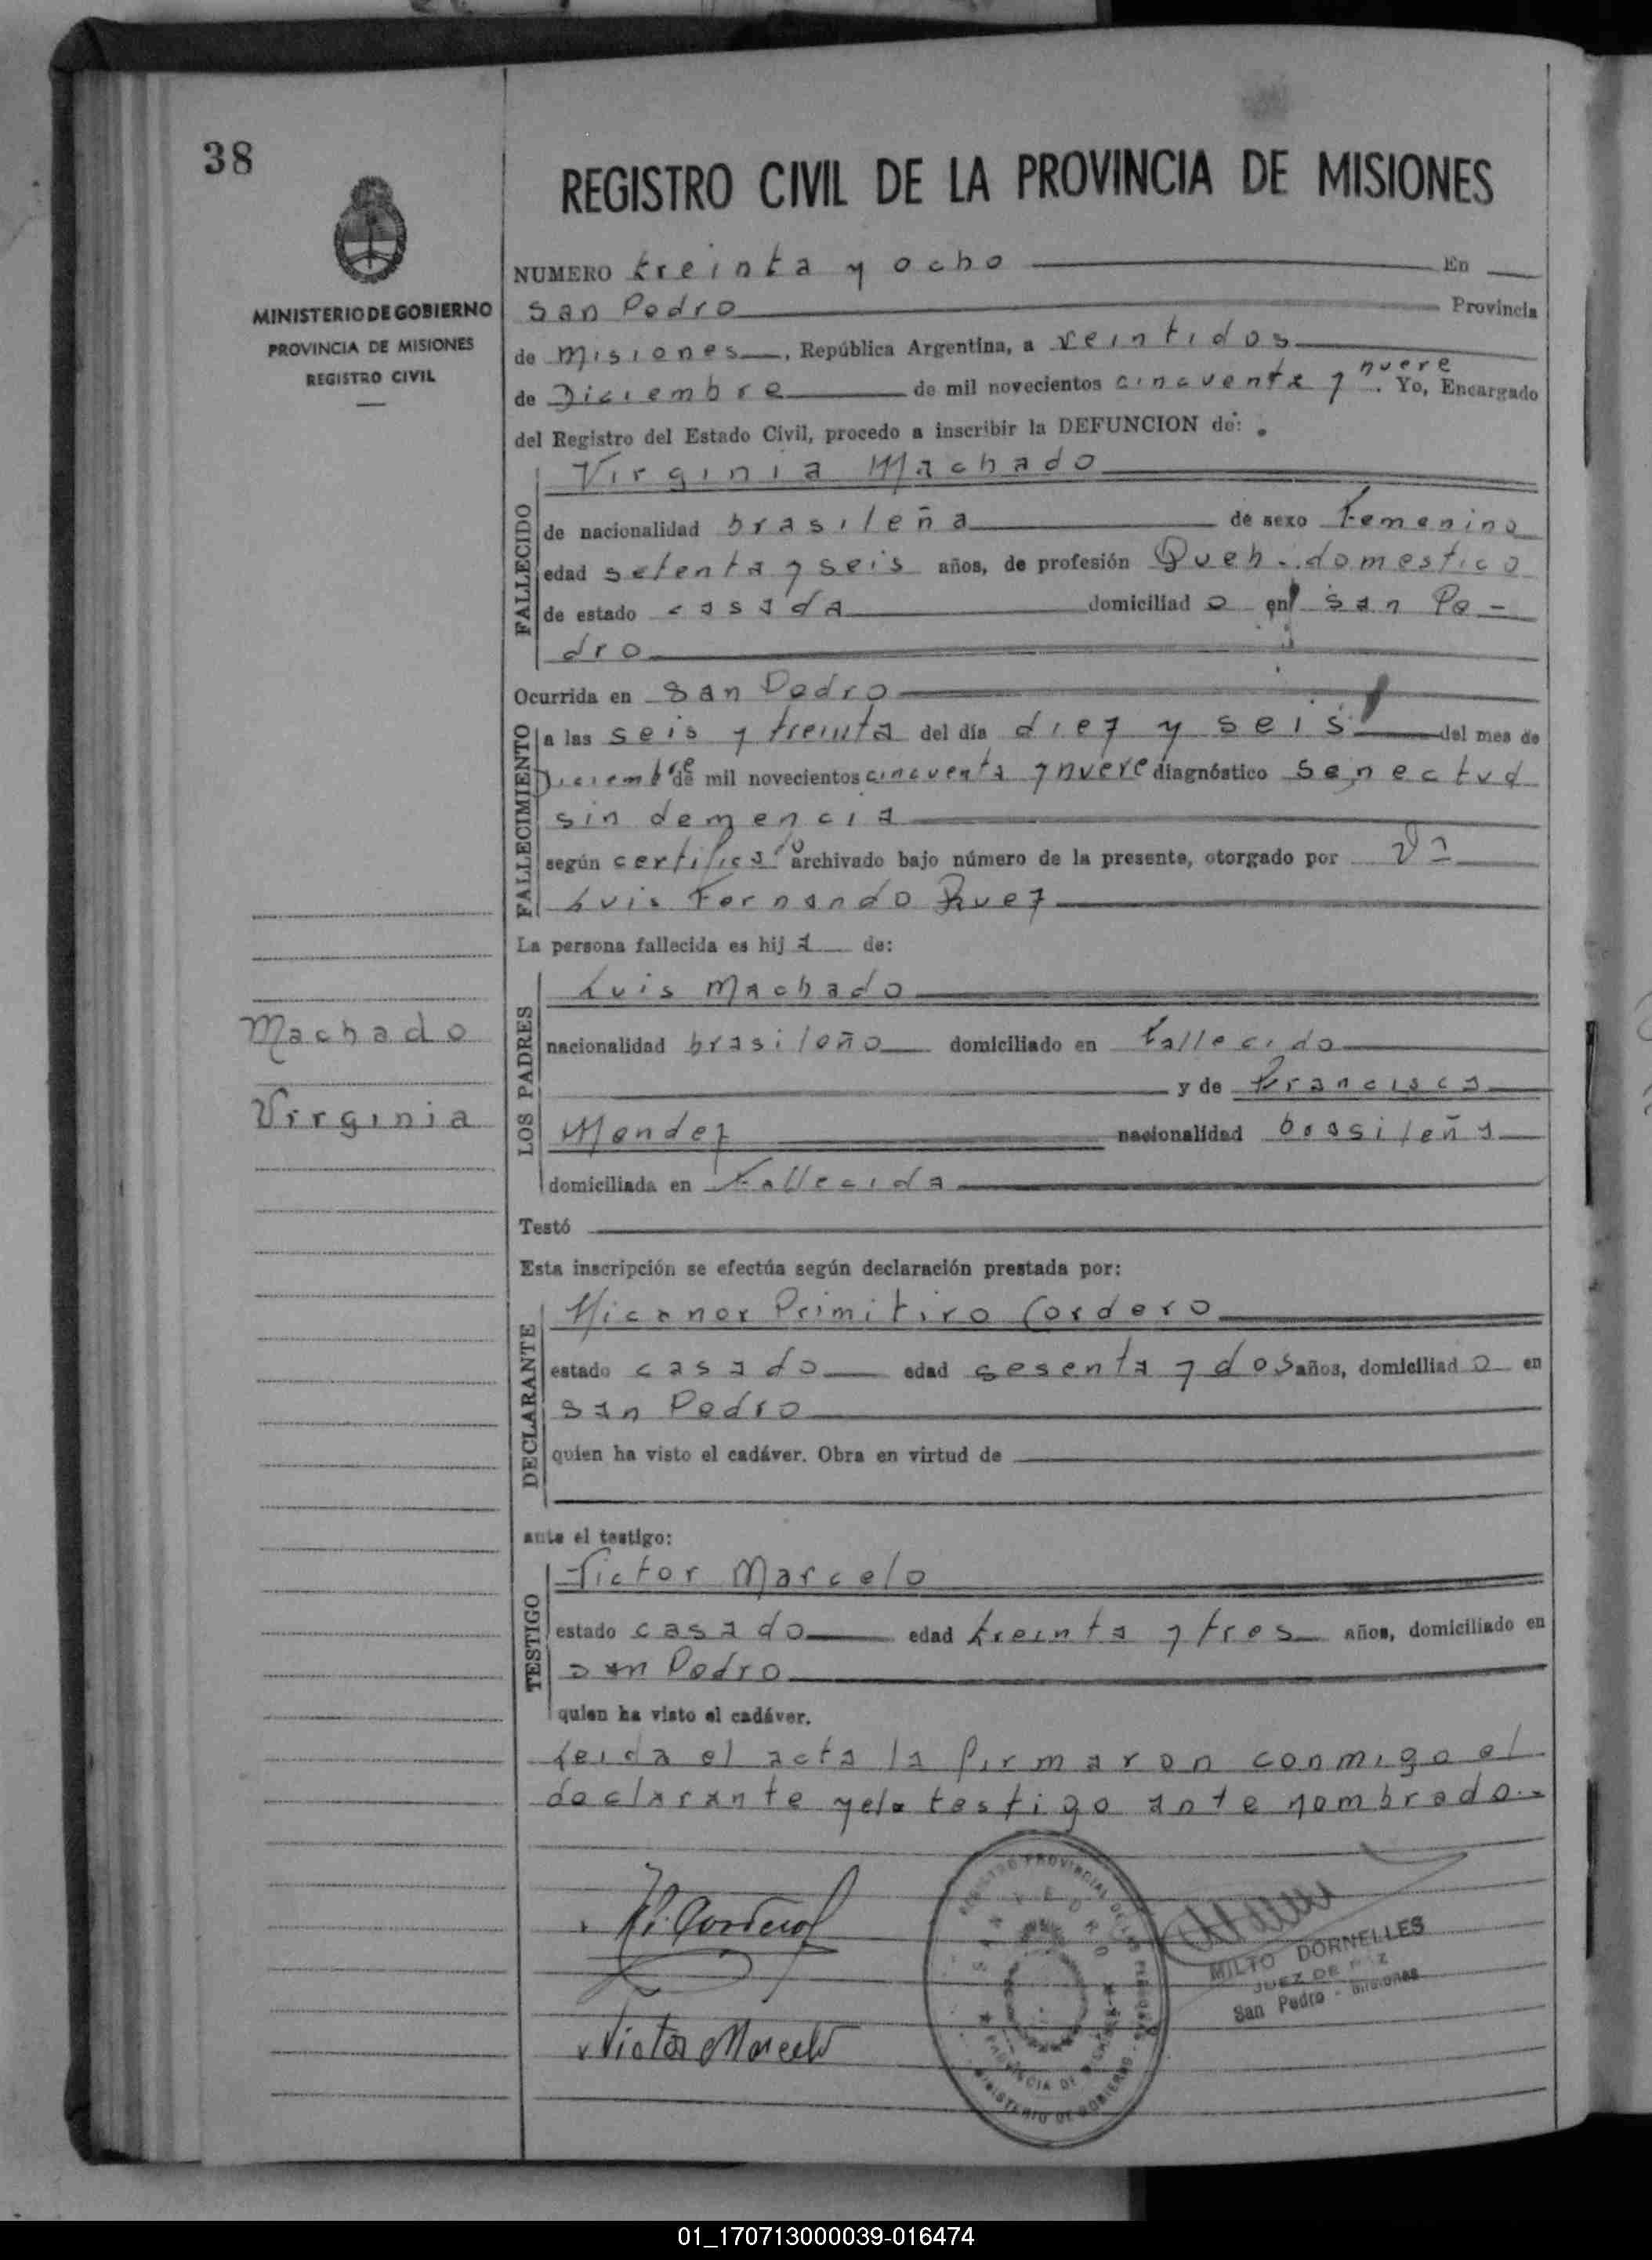 38
MINISTERIO DE GOBIERNO
PROVINCIA DE MISIONES
REGISTRO CIVIL
Machado
Virginia
REGISTRO CIVIL DE LA PROVINCIA DE MISIONES
NUMERO treinta y ocho En
San Pedro Provincia
de Misiones, República Argentina, a veintidos
de Diciembre de mil novecientos cincuenta y nueve. Yo, Encargado
del Registro del Estado Civil, procedo a inscribir la DEFUNCION de:
FALLECIDO
Virginia Machado
de nacionalidad brasileña de sexo Femenino
edad setenta y seis años, de profesión Queh. domestico
de estado casada domiciliad o en San Pe-
dro
Ocurrida en San Pedro
FALLECIMIENTO
a las seis y treinta del día diez y seis del mes de
Diciembre de mil novecientos cincuenta y nueve diagnóstico senectud
sin demencia
según certificado archivado bajo número de la presente, otorgado por
Luis Fernando
La persona fallecida es hij a de:
LOS PADRES
Luis Machado
nacionalidad brasileño domiciliado en fallecido
y de Francisca
Mendez nacionalidad brasileña
domiciliada en Fallecida
Testó
Esta inscripción se efectúa según declaración prestada por:
DECLARANTE
Nicanor Primitivo Cordero
estado casado edad sesenta y dos años, domiciliad o en
San Pedro
quien ha visto el cadáver. Obra en virtud de
ante el testigo:
TESTIGO
Victor Marcelo
estado casado edad treinta y tres años, domiciliado en
San Pedro
quien ha visto el cadáver.
Leida el acta la firmaron conmigo el
declarante y el testigo ante nombrado.-
Cordero
Victor Marcelo
REGISTRO PROVINCIAL DE LAS PERSONAS
SAN PEDRO
PROVINCIA DE MISIONES
MINISTERIO DE GOBIERNO
MILTO DORNELLES
JUEZ DE PAZ
San Pedro - Misiones
01_170713000039-016474